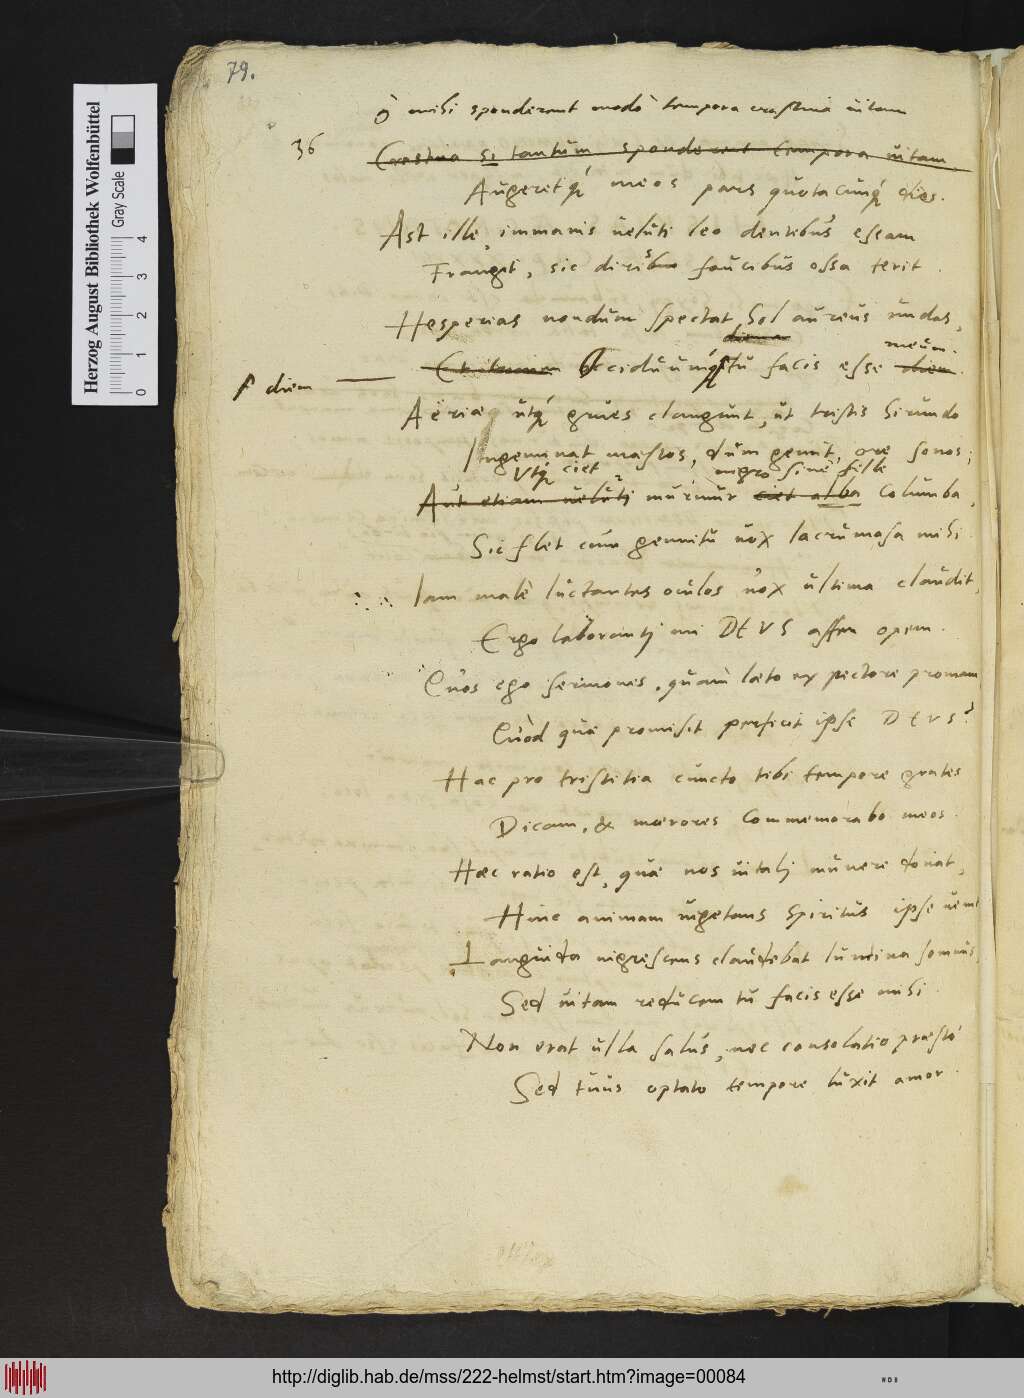 79.
ò mihi sponderent modò tempora crastina uitam
36
Crastina si tantum sponderent tempora uitam,
Augeretq́ meos pars quotacunq́ dies.
Ast ille, immanis uelúti leo dentibús escam
Frangit, sic diris faucibús ossa terit.
Hesperias nondúm spectat Sol aureus undas,
diem
meúm.
Occidúúmq́ tú facis esse diem
diem
Aëriae útq́ grúes clangúnt, út tristis hirúndo
Ingeminat maestos, dúm gemit, ore sonos;
Vtq́ ciet
nigro sine felle
Aút etiam uelúti múrmúr ciet alba colúmba,
Sic flet cúm gemitú uox lacrúmosa mihi
Iam malè lúctantes ocúlos nox última claúdit,
Ergo laboranti mi DEVS affer opem.
Qúos ego sermones, quàm laeto ex pectore promam
Qúòd quae promisit perficit ipse DEVS?
Hac pro tristitia cúncto tibi tempore grates
Dicam, & moerores commemorabo meos.
Haec ratio est, quae nos uitali múnere donat,
Hinc animam uegetans spiritús ipse uenit
Languida nigrescens claúdebat lúmina somnús,
Sed uitam redúcem tú facis esse mihi.
Non erat úlla salús, nec consolatio praestò
Sed túus optato tempore lúxit amor.
Herzog August Bibliothek Wolfenbüttel
Gray Scale
0 1 2 3 4
http://diglib.hab.de/mss/222-helmst/start.htm?image=00084